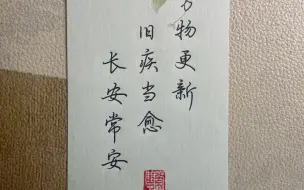 万物更新
旧疾当愈
长安常安